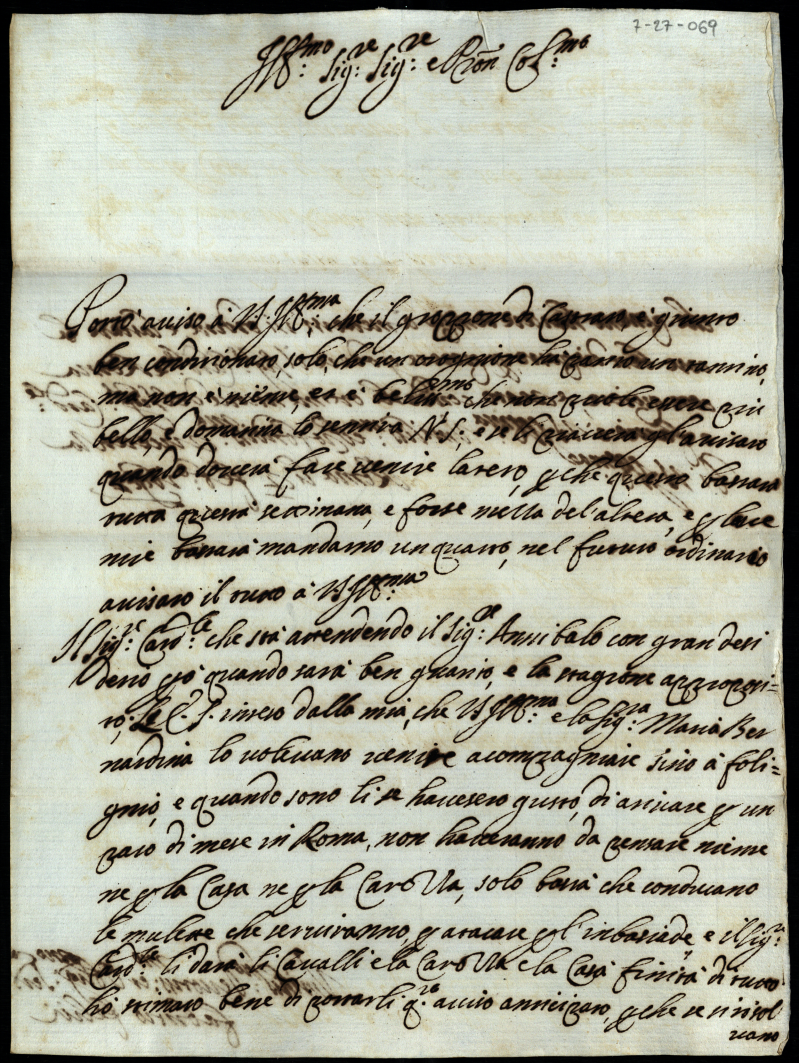 7-27-069
Ill:mo Sig:re Sig:re e Pron Col:mo
Porto aviso à V.S. Ill:ma, che il grozzone di Castrato, è giunto
ben conditionato, solo, che un orognione ha patito un tantino,
ma non è niente, et è bellis:mo che non puole essere più
bello, e domatina lo sentirà N. S.; e se li piacerà gl'avisarò
quando doverà fare venire laltero, p che questo bastarà
tutta questa settimana, e forse nella del'altera, e p
mie bastarà mandarno un quarto, nel futuro ordinario
avisarò il tutto à V.S. Ill:ma
Il Sig:r Card:le che stà attendendo il Sig:re Annibalo con gran desi
derio però quando sarà ben guarito, e la stagione approposi=
to, Le E. S. inteso dalla mia, che V.S. Ill:ma e la Sig:ra Maria Ber
nardina lo volevano venire acompagniare sino à foli=
gnio, e quando sono lì se havesero gusto, di arivare p un
paro di mese in Roma, non haveranno da pensare niente
ne p la Casa ne p la Carozza, solo bastà che conducano
le mulette che serviranno, p atacare p l'inbasciade e il Sig:r
Card:le li darà li Cavalli e la Carozza e la Casa finità di tutto
hò stimato bene di portarli q:to aviso anticipato, p che se si risol
vano